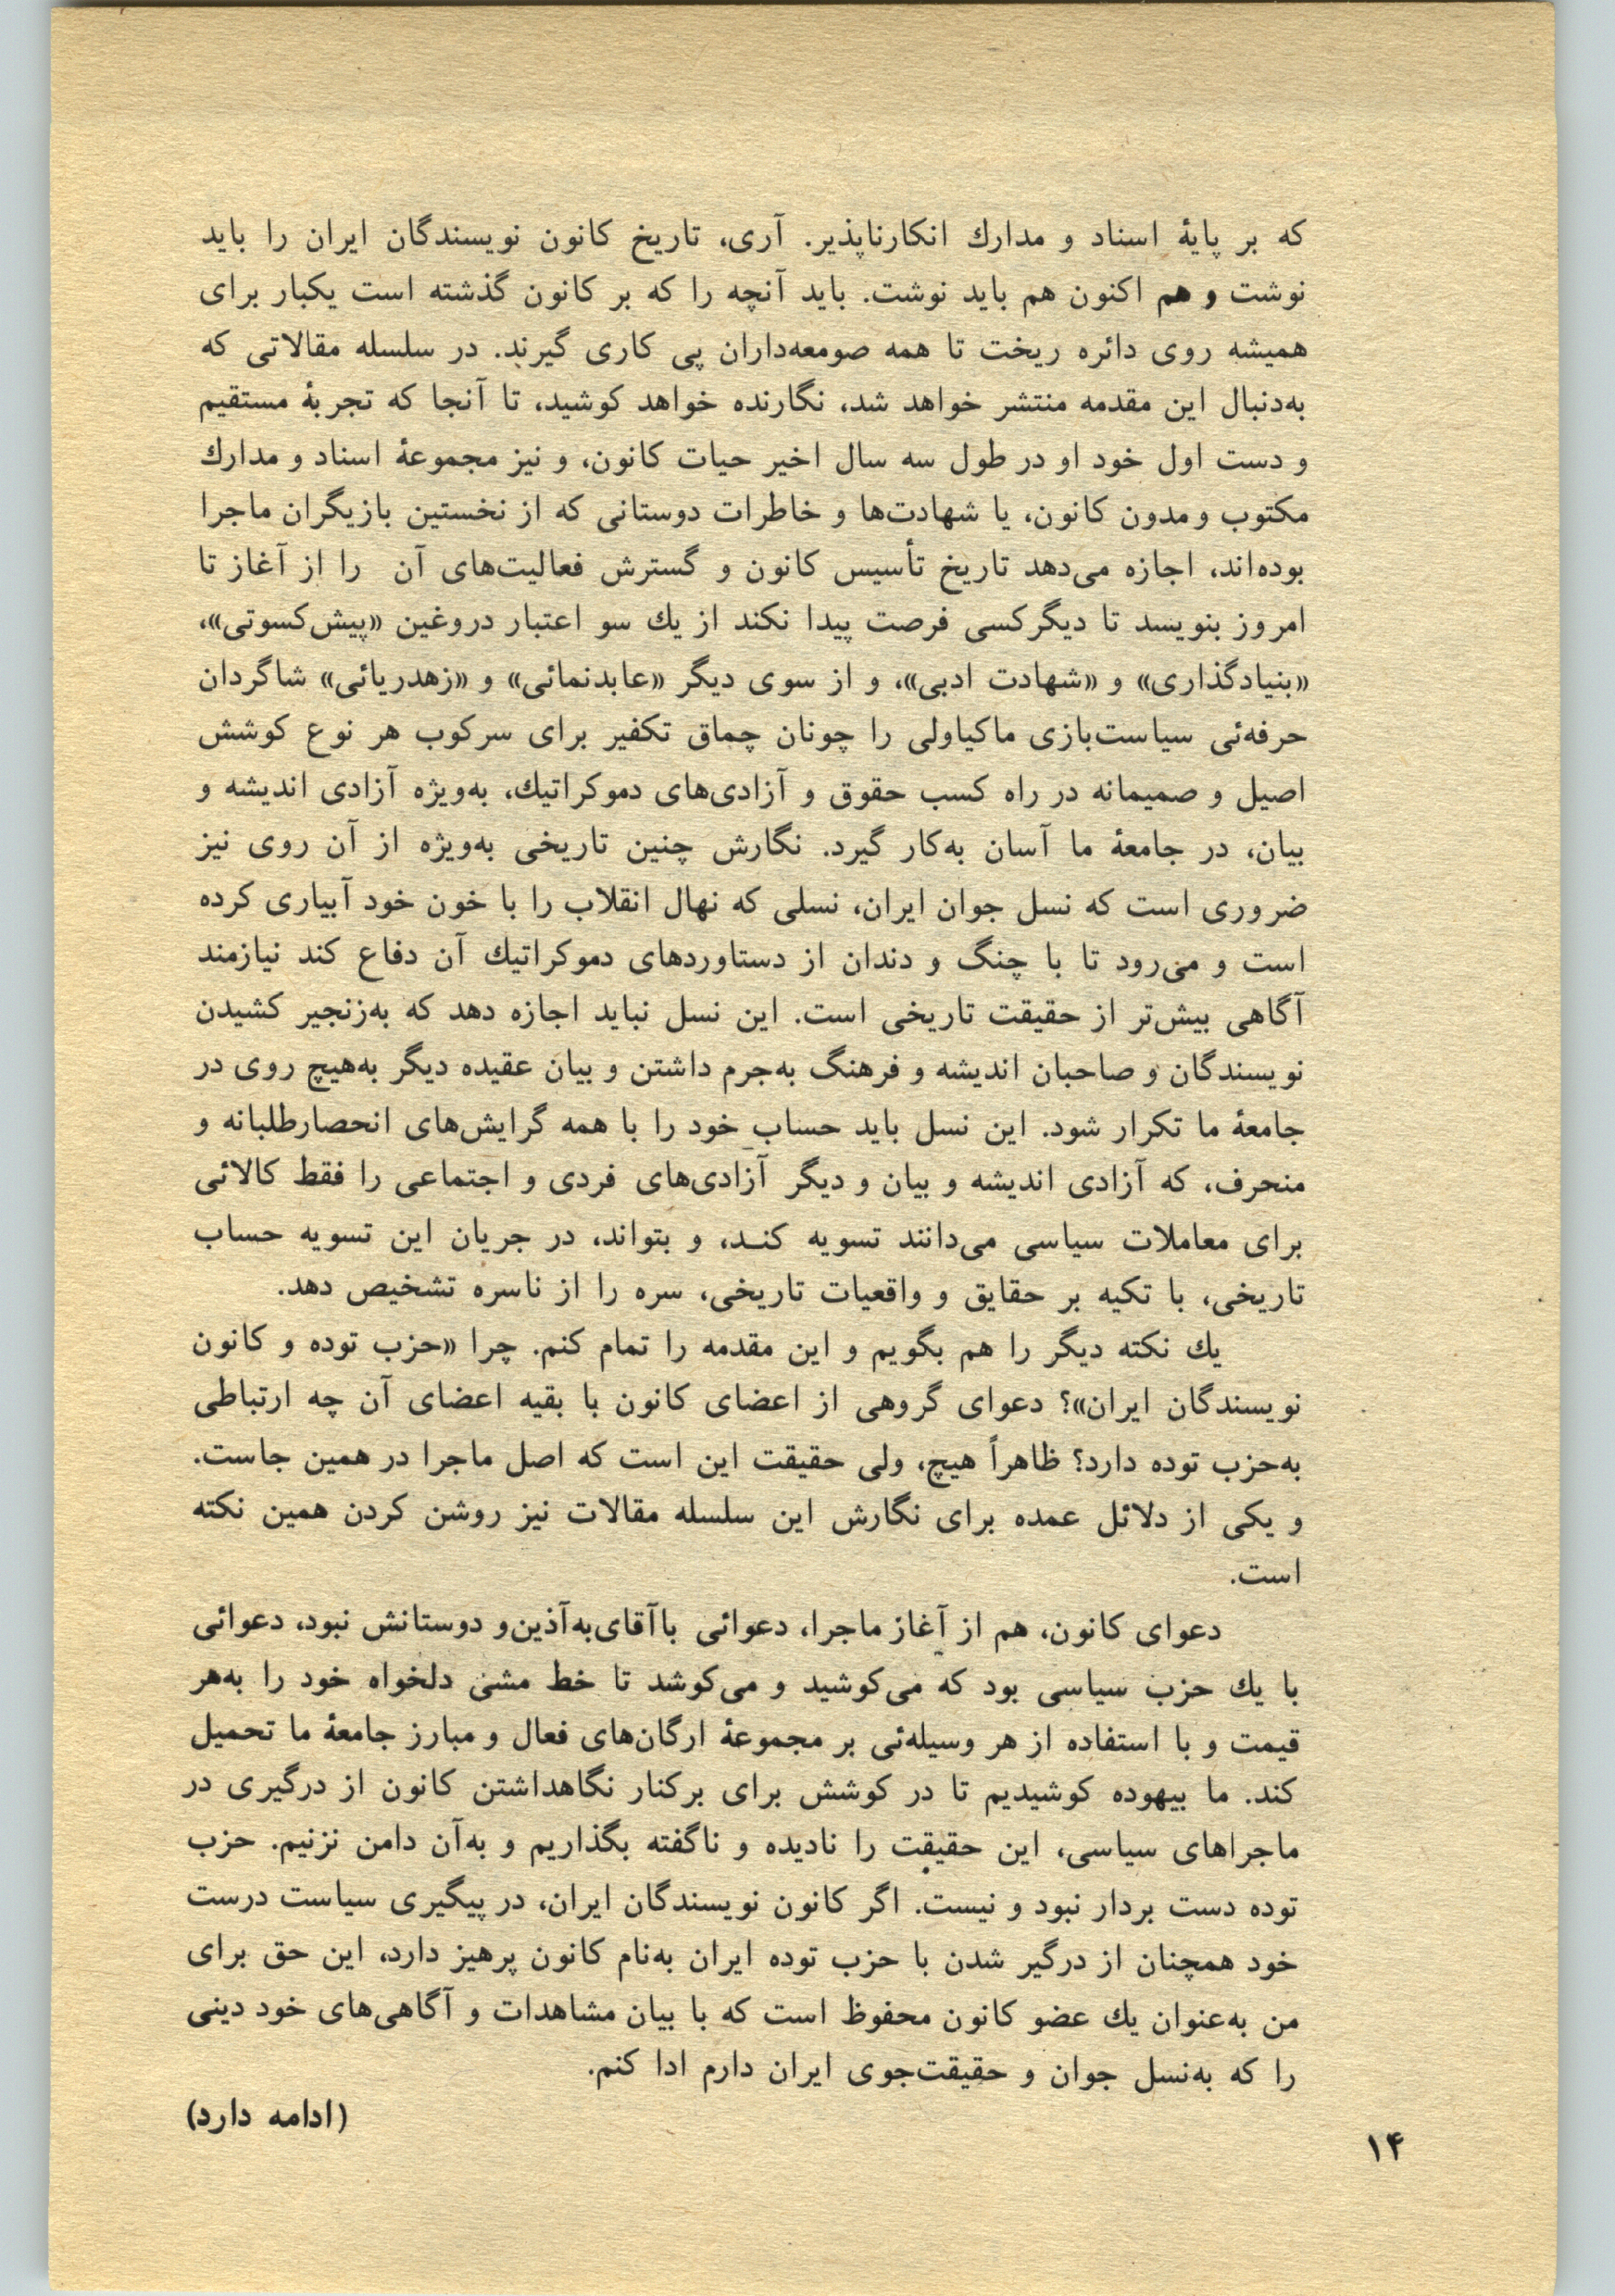 که بر پایهٔ اسناد و مدارك انکارناپذیر. آری، تاریخ کانون نویسندگان ایران را باید
نوشت و هم اکنون هم باید نوشت. باید آنچه را که بر کانون گذشته است یکبار برای
همیشه روی دائره ریخت تا همه صومعه‌داران پی کاری گیرند. در سلسله مقالاتی که
به‌دنبال این مقدمه منتشر خواهد شد، نگارنده خواهد کوشید، تا آنجا که تجربهٔ مستقیم
و دست اول خود او در طول سه سال اخیر حیات کانون، و نیز مجموعهٔ اسناد و مدارك
مکتوب و مدون کانون، یا شهادت‌ها و خاطرات دوستانی که از نخستین بازیگران ماجرا
بوده‌اند، اجازه می‌دهد تاریخ تأسیس کانون و گسترش فعالیت‌های آن را از آغاز تا
امروز بنویسد تا دیگرکسی فرصت پیدا نکند از یك سو اعتبار دروغین «پیش‌کسوتی»،
«بنیادگذاری» و «شهادت ادبی»، و از سوی دیگر «عابدنمائی» و «زهدریائی» شاگردان
حرفه‌ئی سیاست‌بازی ماکیاولی را چونان چماق تکفیر برای سرکوب هر نوع کوشش
اصیل و صمیمانه در راه کسب حقوق و آزادی‌های دموکراتیك، به‌ویژه آزادی اندیشه و
بیان، در جامعهٔ ما آسان به‌کار گیرد. نگارش چنین تاریخی به‌ویژه از آن روی نیز
ضروری است که نسل جوان ایران، نسلی که نهال انقلاب را با خون خود آبیاری کرده
است و می‌رود تا با چنگ و دندان از دستاوردهای دموکراتیك آن دفاع کند نیازمند
آگاهی بیش‌تر از حقیقت تاریخی است. این نسل نباید اجازه دهد که به‌زنجیر کشیدن
نویسندگان و صاحبان اندیشه و فرهنگ به‌جرم داشتن و بیان عقیده دیگر به‌هیچ روی در
جامعهٔ ما تکرار شود. این نسل باید حساب خود را با همه گرایش‌های انحصارطلبانه و
منحرف، که آزادی اندیشه و بیان و دیگر آزادی‌های فردی و اجتماعی را فقط کالائی
برای معاملات سیاسی می‌دانند تسویه کنـد، و بتواند، در جریان این تسویه حساب
تاریخی، با تکیه بر حقایق و واقعیات تاریخی، سره را از ناسره تشخیص دهد.
یك نکته دیگر را هم بگویم و این مقدمه را تمام کنم. چرا «حزب توده و کانون
نویسندگان ایران»؟ دعوای گروهی از اعضای کانون با بقیه اعضای آن چه ارتباطی
به‌حزب توده دارد؟ ظاهراً هیچ، ولی حقیقت این است که اصل ماجرا در همین جاست.
و یکی از دلائل عمده برای نگارش این سلسله مقالات نیز روشن کردن همین نکته
است.
دعوای کانون، هم از آغاز ماجرا، دعوائی باآقای‌به‌آذین‌و دوستانش نبود، دعوائی
با یك حزب سیاسی بود که می‌کوشید و می‌کوشد تا خط مشی دلخواه خود را به‌هر
قیمت و با استفاده از هر وسیله‌ئی بر مجموعهٔ ارگان‌های فعال و مبارز جامعهٔ ما تحمیل
کند. ما بیهوده کوشیدیم تا در کوشش برای برکنار نگاهداشتن کانون از درگیری در
ماجراهای سیاسی، این حقیقت را نادیده و ناگفته بگذاریم و به‌آن دامن نزنیم. حزب
توده دست بردار نبود و نیست. اگر کانون نویسندگان ایران، در پیگیری سیاست درست
خود همچنان از درگیر شدن با حزب توده ایران به‌نام کانون پرهیز دارد، این حق برای
من به‌عنوان یك عضو کانون محفوظ است که با بیان مشاهدات و آگاهی‌های خود دینی
را که به‌نسل جوان و حقیقت‌جوی ایران دارم ادا کنم.
(ادامه دارد)
۱۴